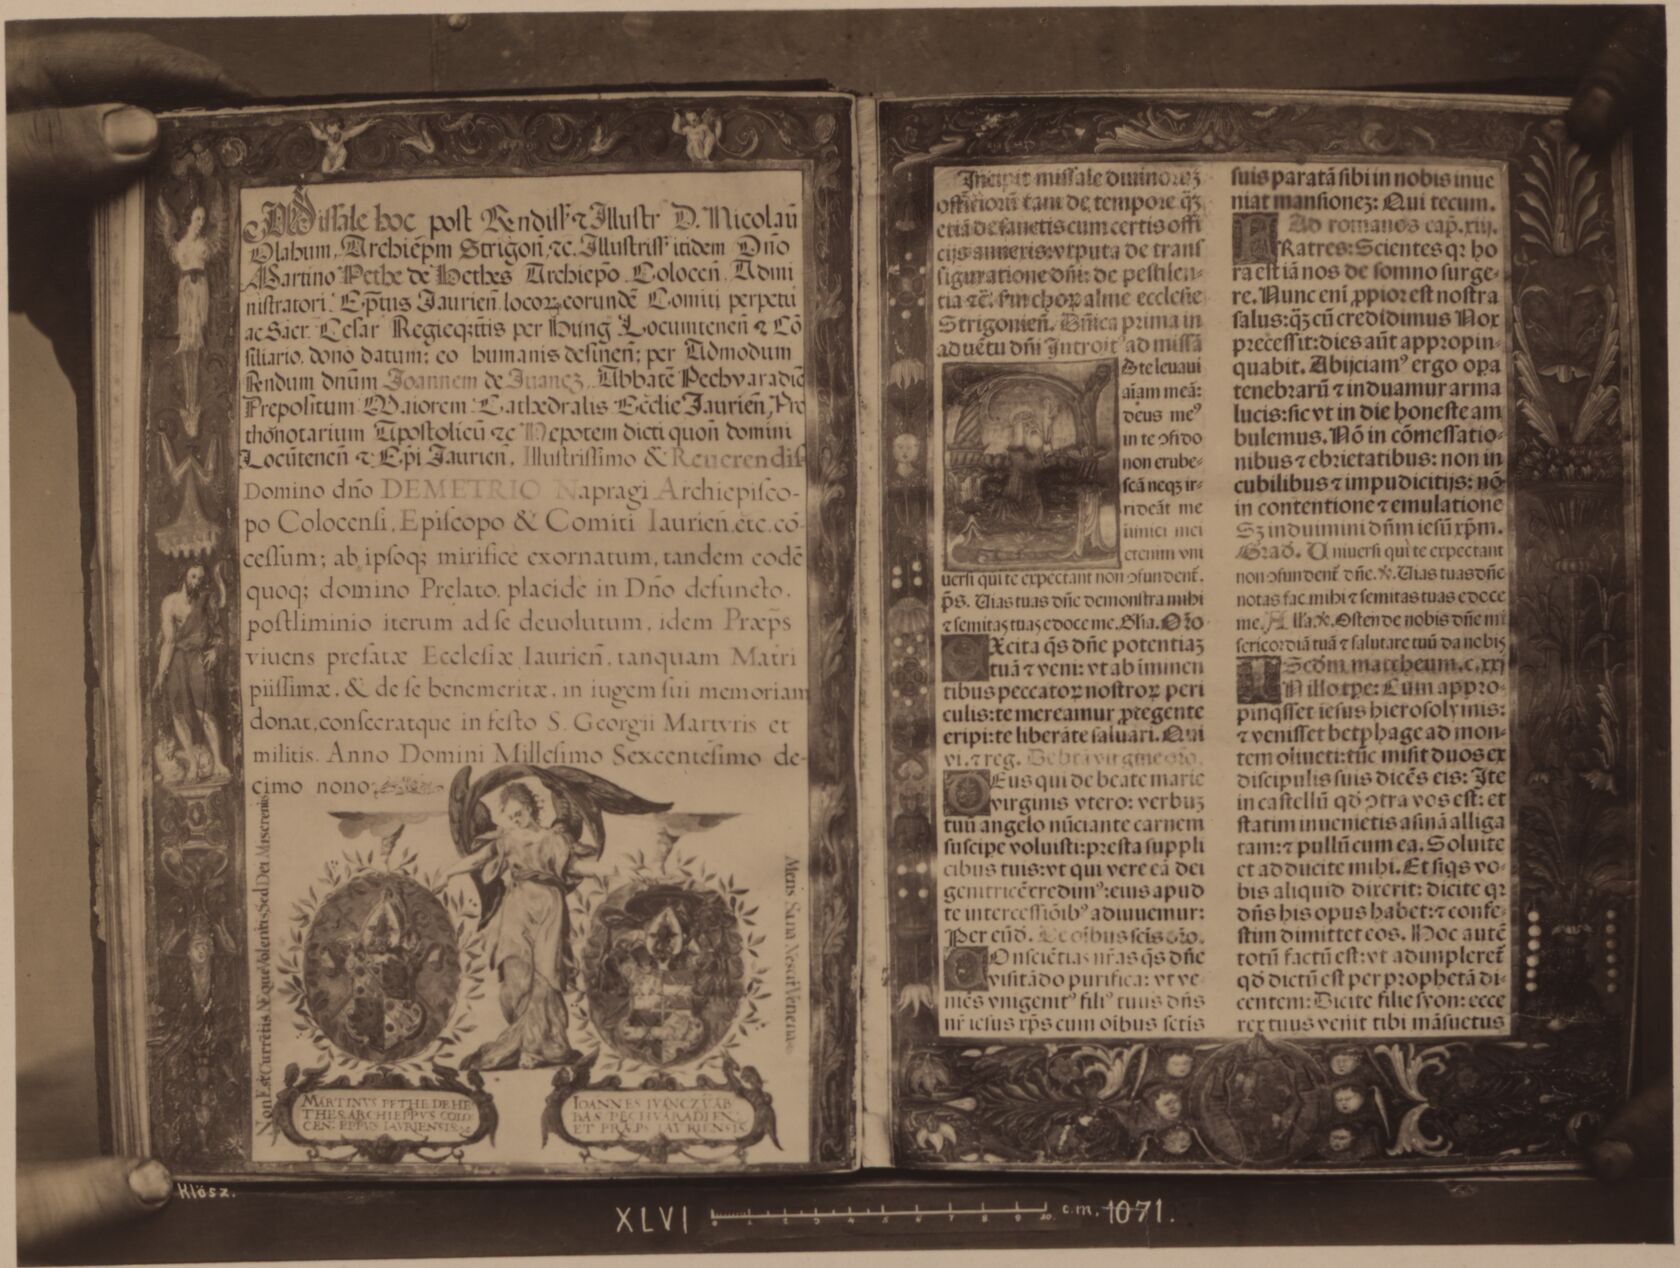 Missale hoc post Rendiss' ⁊ Illustr D. Nicolaū
Olahum, Archiēpm Strigoñ ⁊c. Illustriss' itidem Dño
Martino Pethe de Hethes Archiepo Coloceñ. Admi
nistratori: Epṫus Iaurieñ. locorꝫ eorundē Comiti perpetu
ac Sacr. Cesar Regieqꝫ per Hung Locumteneñ ⁊ Cō
siliario, dono datum: eo humanis desineñ: per Admodum
Rendum dnūm Joannem de Iuancz, Abbatē Pechvaradiē
Prepositum Maiorem Cathedralis Eccl̄ie Iaurieñ, Pro
thōnotarium Apostolicū ⁊c Nepotem dicti quoñ domini
Locūteneñ ⁊ Epi Iaurieñ, Illustrissimo & Reuerendis
Domino dño DEMETRIO Napragi Archiepisco-
po Colocensi, Episcopo & Comiti Iaurieñ. etc. cō-
cessum; ab ipsoqꝫ mirifice exornatum, tandem eodē
quoqꝫ domino Prelato, placide in Dño defuncto,
postliminio iterum ad se deuolutum, idem Præp̄s
viuens prefatæ Ecclesiæ Iaurieñ, tanquam Matri
piissimæ, & de se benemeritæ, in iugem sui memoriam
donat, consecratque in festo S. Georgii Martyris et
militis. Anno Domini Millesimo Sexcentesimo de-
cimo nono:
Non Est Currētis Neque Volentis Sed Dei Miserentis
Mens Sana Nescit Venena
MARTINVS PETHE DE HE
THES ARCHIEPPVS COLO
CEN: EPPVS IAVRIENSIS
IOANNES IVANCZY AB
BAS PECHVARADIEN:
ET PRÆPS IAVRIENSIS
Incipit missale diuinorꝫ
officiorū tam de tempore qꝫ
etiā de sanctis cum certis offi
cijs annexis: vtputa de trans
figuratione dñi: de pestilen-
tia ⁊c̄. fm choꝝ alme ecclesie
Strigonieñ. Dñica prima in
aduētu dñi Introit' ad missā
A te leuaui
aīam meā:
deus me⁹
in te ɔfido
non erube-
scā neqꝫ ir-
rideāt me
inimici mei
etenim vni
uersi qui te expectant non ɔfundent̄.
p̄s. Uias tuas dñe demonstra mihi
⁊ semitas tuas edoce me. Glīa. Oṝo
EXcita q̄s dñe potentiaꝫ
tuā ⁊ veni: vt ab iminen
tibus peccatoꝝ nostroꝝ peri
culis: te mereamur ꝓtegente
eripi: te liberāte saluari. Qui
vi. ⁊ reg. De btā virgine oṝo.
DEus qui de beate marie
virginis vtero: verbuꝫ
tuū angelo nūciante carnem
suscipe voluisti: presta suppli
cibus tuis: vt qui vere eā dei
genitricē credim⁹: eius apud
te intercessiōib⁹ adiuuemur:
Per eūd. De oībus scīs oṝo.
COnsciētias nr̄as q̄s dñe
visitādo purifica: vt ve-
niēs vnigenit⁹ fili⁹ tuus dñs
nr̄ iesus xp̄s cum oībus sctīs
suis paratā sibi in nobis inue
niat mansionez: Qui tecum.
Ad romanos cap. xiij.
FRatres: Scientes qꝛ ho
ra est iā nos de somno surge-
re. Nunc eni ꝓpior est nostra
salus: qꝫ cū credidimus Nox
precessit: dies aūt appropin-
quabit. Abijciam⁹ ergo opa
tenebrarū ⁊ induamur arma
lucis: sic vt in die honeste am
bulemus. Nō in cōmessatio-
nibus ⁊ ebrietatibus: non in
cubilibus ⁊ impudicitijs: nō
in contentione ⁊ emulatione
Sꝫ induimini dñm iesū xp̄m.
Grad. Uniuersi qui te expectant
non ɔfundent̄ dñe. ℣. Uias tuas dñe
notas fac mihi ⁊ semitas tuas edoce
me. Alla. ℣. Ostende nobis dñe mi
sericordiā tuā ⁊ salutare tuū da nobis
Scdm mattheum. c. xxj
IN illo tpe: Cum appro-
pinqsset iesus hierosolymis:
⁊ venisset betphage ad mon-
tem oliueti: tūc misit duos ex
discipulis suis dicēs eis: Ite
in castellū qd̄ ɔtra vos est: et
statim inuenietis asinā alliga
tam: ⁊ pullū cum ea. Soluite
et adducite mihi. Et siqs vo-
bis aliquid dixerit: dicite qꝛ
dñs his opus habet: ⁊ confe-
stim dimittet eos. Hoc autē
totū factū est: vt adimpleret̄
qd̄ dictū est per prophetā di-
centem: Dicite filie syon: ecce
rex tuus venit tibi māsuetus
Klösz.
XLVI 0 1 2 3 4 5 6 7 8 9 10 c.m. 1071.